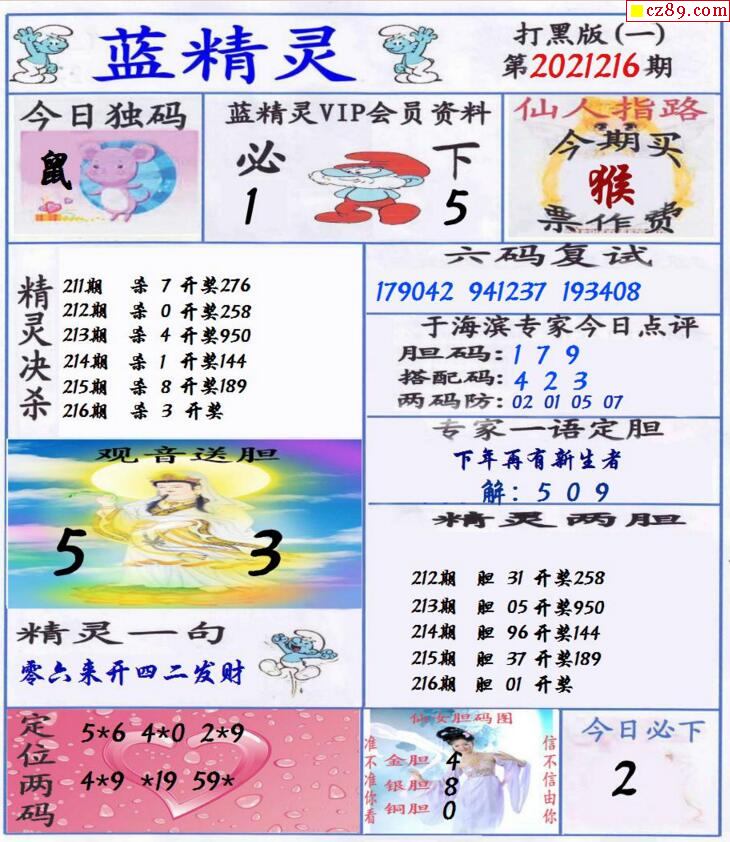 cz89.com
蓝精灵
打黑版(一)
第2021216期
今日独码
鼠
蓝精灵VIP会员资料
必 下
1 5
仙人指路
今期买
猴
票作费
精灵决杀
211期 杀 7 开奖276
212期 杀 0 开奖258
213期 杀 4 开奖950
214期 杀 1 开奖144
215期 杀 8 开奖189
216期 杀 3 开奖
六码复试
179042 941237 193408
于海滨专家今日点评
胆码: 1 7 9
搭配码: 4 2 3
两码防: 02 01 05 07
专家一语定胆
下年再有新生者
解: 5 0 9
观音送胆
5 3
精灵两胆
212期 胆 31 开奖258
213期 胆 05 开奖950
214期 胆 96 开奖144
215期 胆 37 开奖189
216期 胆 01 开奖
精灵一句
零六来开四二发财
定位两码
5*6 4*0 2*9
4*9 *19 59*
仙女胆码图
准不准你看
金胆 4
银胆 8
铜胆 0
信不信由你
今日必下
2